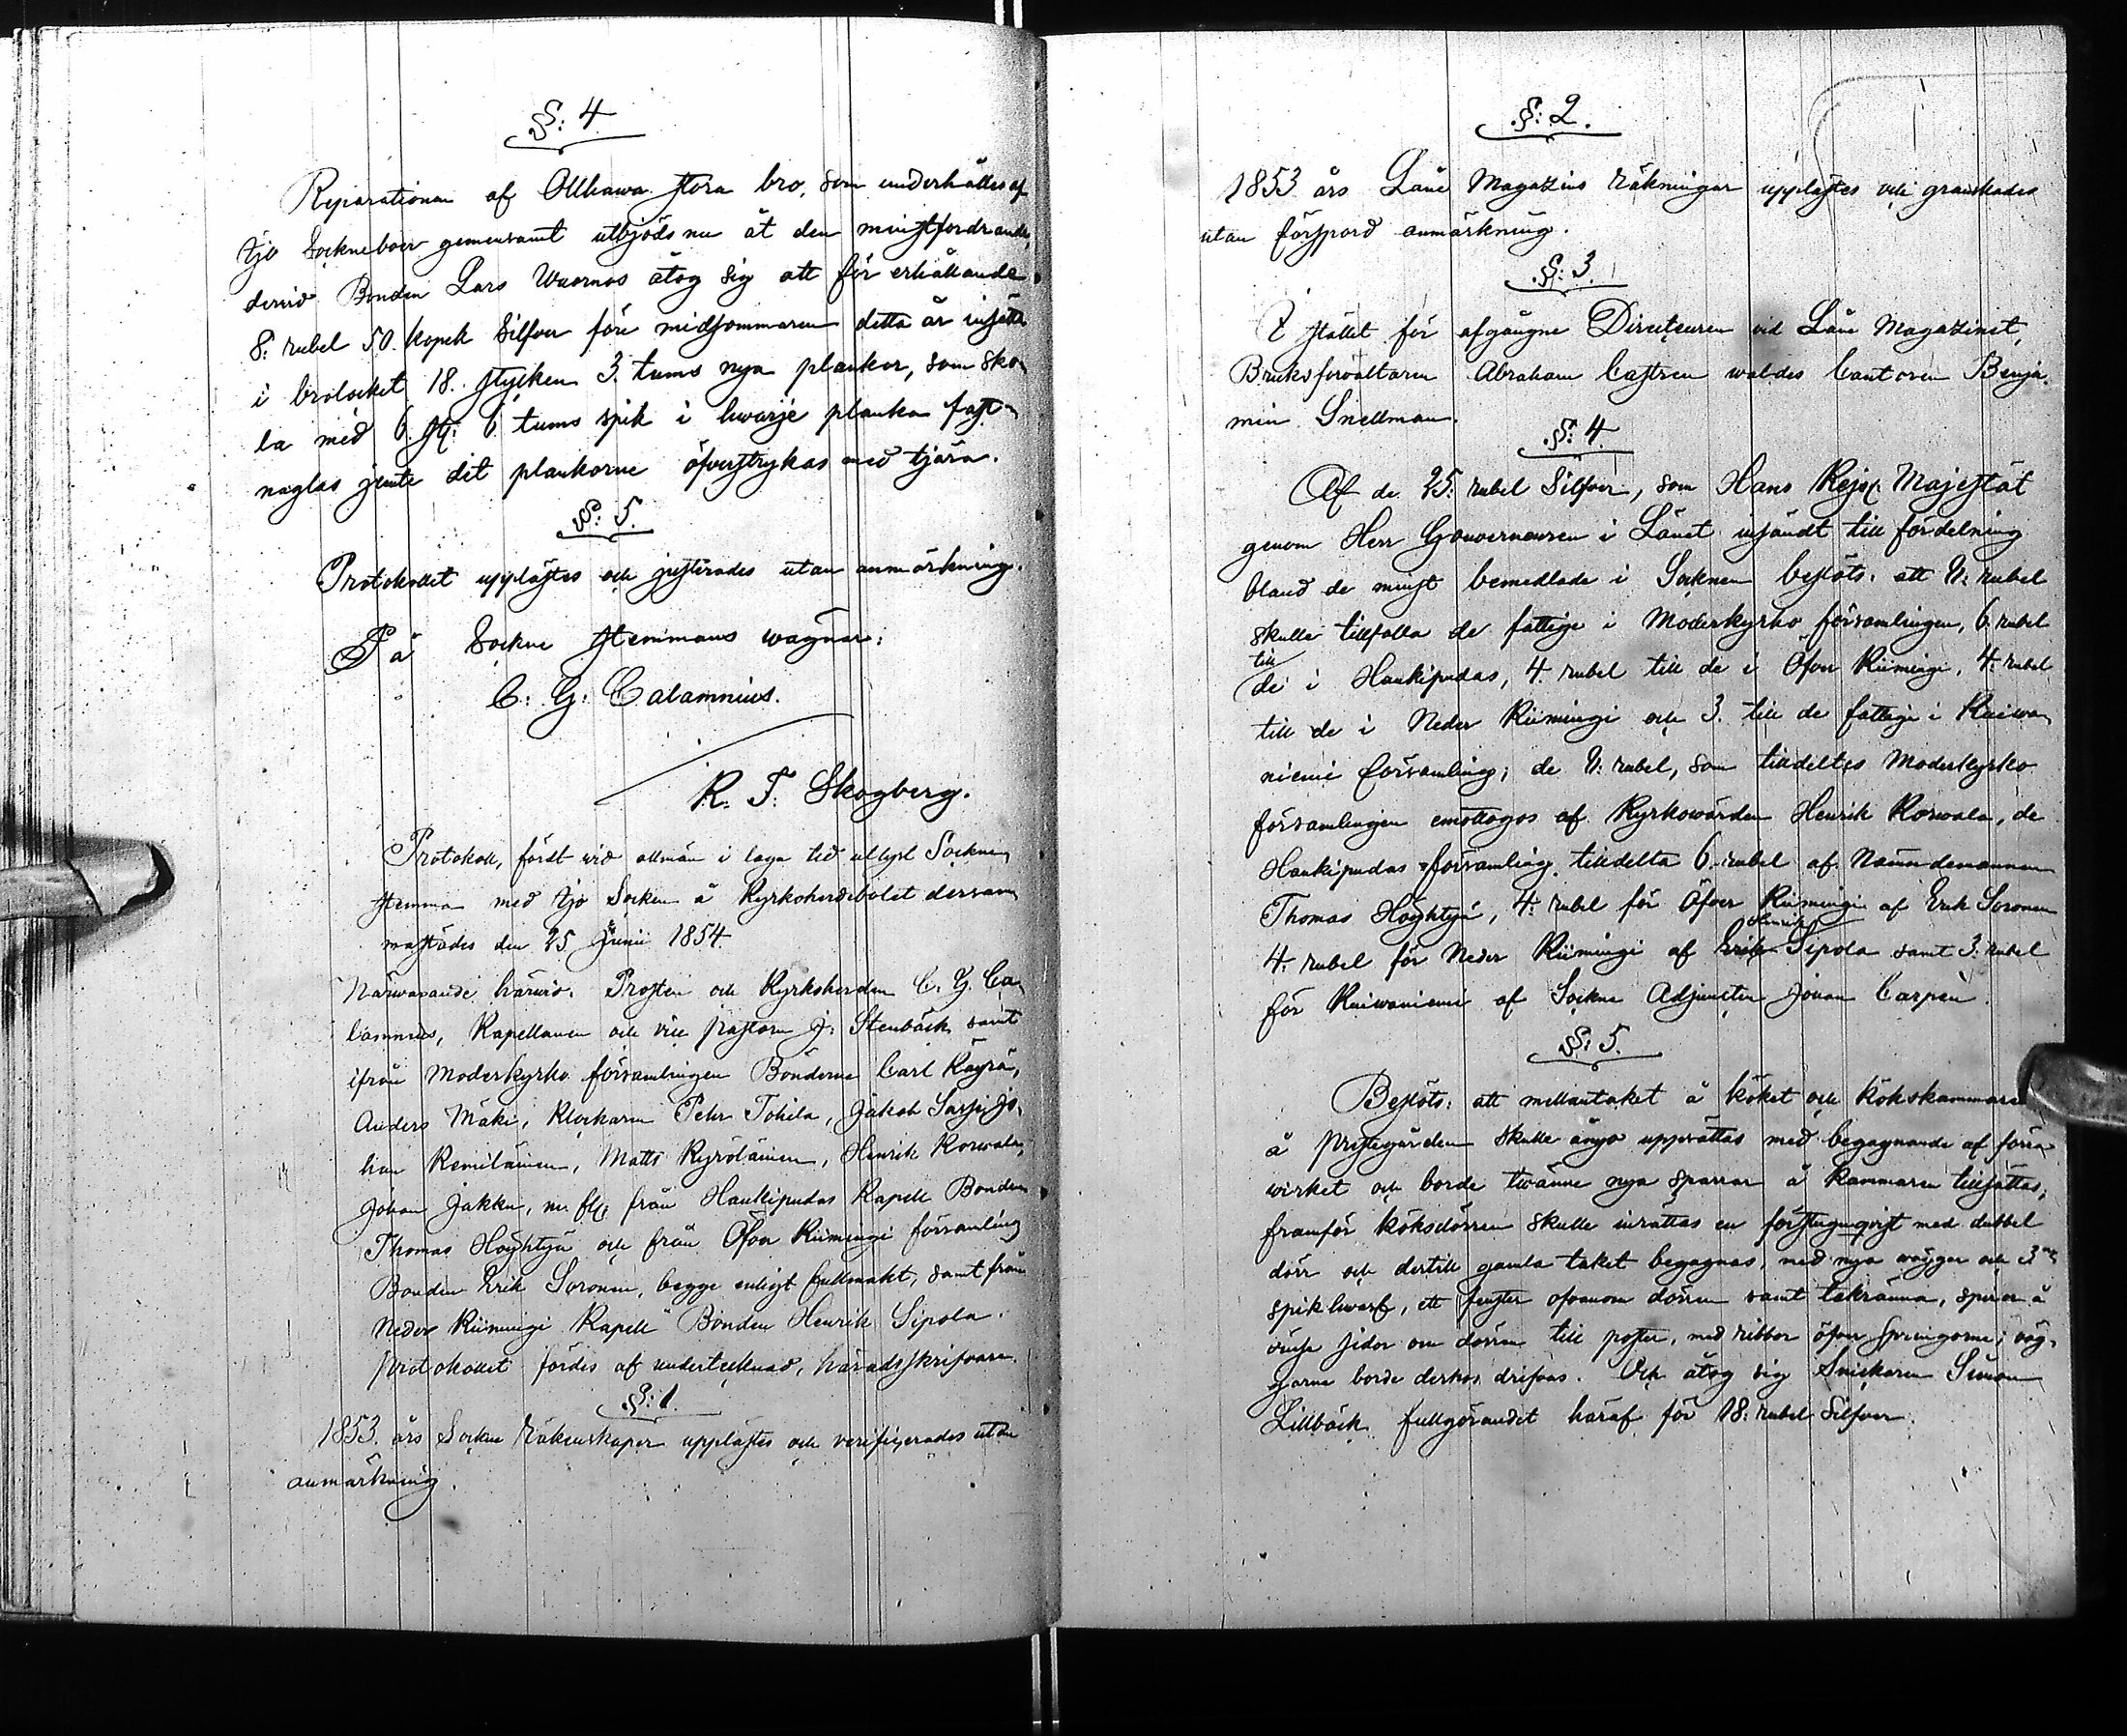 §: 4
Reparationen af Olkawa stora bro, som underhålles af
Ijo Sockneboer gemensamt utbjöds nu åt den minstfordrande,
dervid Bonden Lars Wuornos åtog sig att för erhållande
8: rubel 50. kopek Silfver före midsommaren detta år insätta
i brolocket 18. stycken 3. tums nya plankor, som sko-
la med 6 st: 6 tums spik i hwarje planka fast-
naglas jemte det plankorne öfverstrykas med tjära.
§: 5.
Protokollet upplästes och justerades utan anmärkning.
På Sockne stemmans wägnar:
C: G: Calamnius.
R. F. Skogberg.
Protokoll, fördt wid allmän i laga tid utlyst Sockne
stemma med Ijo Socken å Kyrkoherdebolet dersam-
mastädes den 25 Junii 1854.
Närwarande härwid: Prosten och Kyrkoherden C. G. Ca-
lamnius, Kapellanen och vice pastorn J. Stenbäck samt
ifrån Moderkyrko församlingen Bönderne Carl Käyrä,
Anders Mäki, Klockaren Pehr Tohila, Jakob Sarsi, Jo-
han Kemiläinen, Matts Kyröläinen, Henrik Korwala,
Johan Jakku, m. fl. från Haukipudas Kapell Bonden
Thomas Höyhtyä och från Öfver Kiimingi församling
Bonden Erik Soronen, begge enligt fullmakt, samt från
Neder Kiimingi Kapell Bonden Henrik Sipola.
Protokollet fördes af undertecknad, häradsskrifvare.
§: 1.
1853. års Sockne Räkenskaper upplästes och verifigerades utan
anmärkning.
§: 2.
1853 års Låne Magazins räkningar upplästes och granskades
utan förspord anmärkning.
§: 3.
I stället för afgångne Directeuren vid Låne Magazinet,
Bruksförvaltaren Abraham Castren waldes Cantoren Benja-
min Snellman.
§: 4.
Af de 25: rubel Silfver, som Hans Kejs. Majestät
genom Herr Gouverneuren i Länet insändt till fördelning
bland de minst bemedlade i Socknen beslöts: att 8: rubel
skulle tillfalla de fattige i Moderkyrko församlingen, 6 rubel
till
de i Haukipudas, 4. rubel till de i Öfver Kiimingi, 4. rubel
till de i Neder Kiimingi och 3. till de fattige i Kuiwa-
niemi församling; de 8: rubel, som tilldeltes Moderkyrko
församlingen emottogos af Kyrkowärden Henrik Korwala, de
Haukipudas församling tilldelta 6. rubel af Nämndemannen
Thomas Höyhtyä, 4. rubel för Öfver Kiimingi af Erik Soronen
Henrik
4. rubel för Neder Kiimingi af Erik Sipola samt 3. rubel
för Kuiwaniemi af Sockne Adjuncten Johan Carpén.
§: 5.
Beslöts: att mellantaket å köket och kökskammaren
å prestegården skulle ånyo upprättas med begagnande af förra
wirket och borde twänne nya sparrar å kammaren tillsättas;
framför köksdörren skulle inrättas en förstuguqvist med dubbel
dörr och dertill gamla taket begagnas, med nya wäggar och 3
spikhwarf, ett fenster ofvanom dörren samt takränna, å
sidor om dörren till poster, med ribbor öfver springorne; wäg-
garne borde derhos drifvas. Och åtog sig Snickaren Simon
Lillbäck fullgörandet häraf för 18: rubel Silfver.